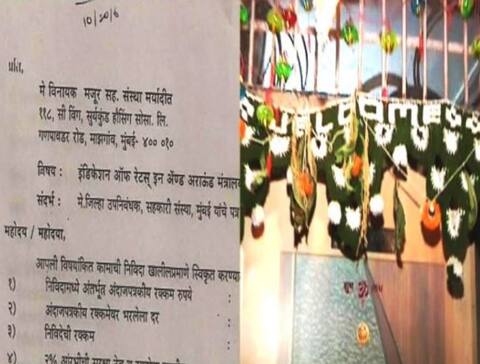 10/2016
प्रति,
मे विनायक मजूर सह. संस्था मर्यादीत
११८, सी विंग, सुर्यकुंड हौसिंग सोसा. लि.
गणपावडर रोड, माझगांव, मुंबई- ४०० ०१०
विषय : इंडिकेशन ऑफ रेटस् इन ॲण्ड अराऊंड मंत्रालय
संदर्भ : मे.जिल्हा उपनिबंधक, सहकारी संस्था, मुंबई यांचे पत्र
महोदय / महोदया,
आपली विषयांकित कामाची निविदा खालीलप्रमाणे स्विकृत करण्या
१) निविदामध्ये अंतर्भूत अंदाजपत्रकीय रक्कम रुपये :
२) अंदाजपत्रकीय रक्कमेवर भरलेला दर :
३) निविदेची रक्कम :
४) २%
WELCOME
शुभ ॐ लाभ